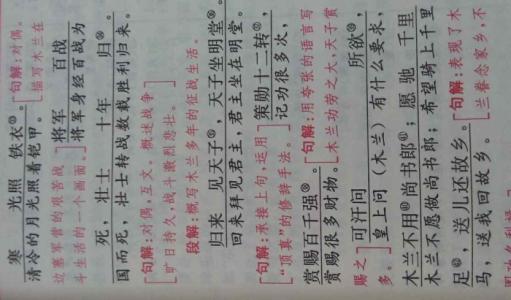 寒 光照 铁衣。[句解:对偶。
清冷的月光照着铠甲。 描写木兰在
边塞军营的艰苦战 将军 百战
斗生活的一个画面。] 将军身经百战为
死,壮士 十年 归。
国而死,壮士转战数载胜利归来。
[句解:对偶,互文。概述战争
旷日持久,战斗激烈悲壮。]
段解:概写木兰多年的征战生活。
归来 见天子,天子坐明堂。
回来拜见君主,君主坐在明堂。
[句解:承接上句,运用 策勋十二转,
“顶真”的修辞手法。] 记功很多次,
赏赐百千强。[句解:用夸张的语言写
赏赐很多财物。 木兰功劳之大,天子赏
赐之 可汗问 所欲,
多。] 皇上问(木兰)有什么要求,
木兰不用尚书郎;愿 驰 千里
木兰不愿做尚书郎;希望骑上千里
足,送儿还故乡。[句解:表现了木
马,送我回故乡。 兰眷念家乡,不